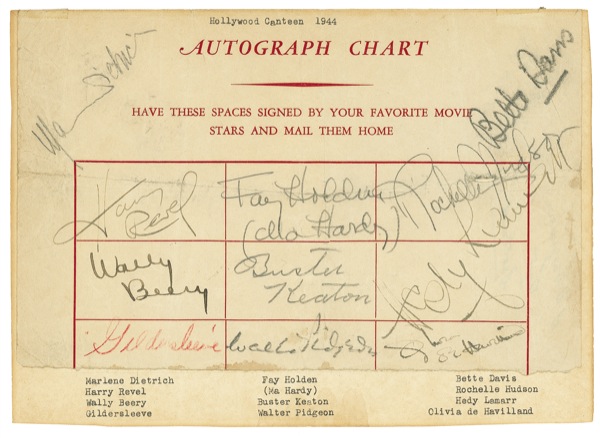 Hollywood Canteen 1944
AUTOGRAPH CHART
HAVE THESE SPACES SIGNED BY YOUR FAVORITE MOVIE
STARS AND MAIL THEM HOME
Bette Davis
Harry
Revel
Fay Holden
(Ma Hardy)
Rochelle Hudson
Wally
Beery
Buster
Keaton
Hedy
Gildersleeve
Marlene Dietrich
Harry Revel
Wally Beery
Gildersleeve
Fay Holden
(Ma Hardy)
Buster Keaton
Walter Pidgeon
Bette Davis
Rochelle Hudson
Hedy Lamarr
Olivia de Havilland